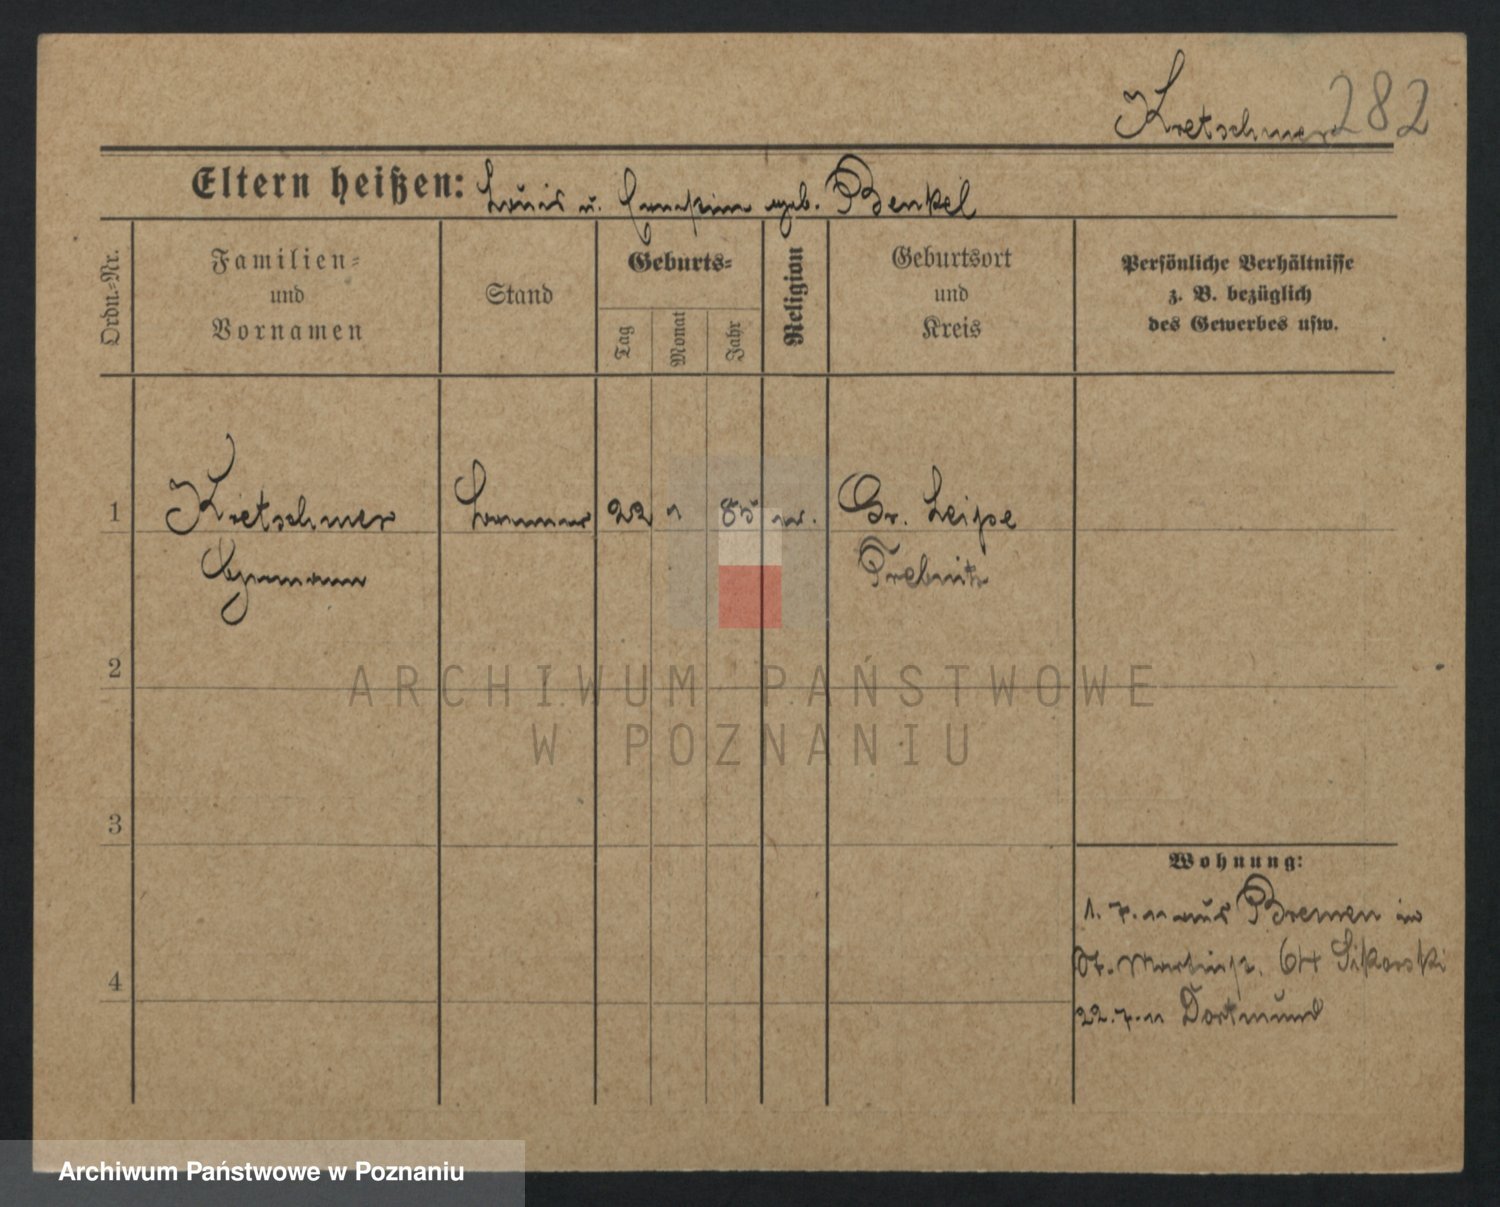 Kretschmer 282
Eltern heißen: Louis u. geb. Benkel
Ordn.-Nr.
Familien-
und
Vornamen
Stand
Geburts-
Tag
Monat
Jahr
Religion
Geburtsort
und
Kreis
Persönliche Verhältnisse
z. B. bezüglich
des Gewerbes usw.
1 Kretschmer 22 85 Gr. Leipe
Hermann Trebnitz
2
3
4
Wohnung:
1. 7. 11 aus Bremen in
St. Martinstr. 64 Sikorski
22. 7. 11 Dortmund
ARCHIWUM PAŃSTWOWE
W POZNANIU
Archiwum Państwowe w Poznaniu